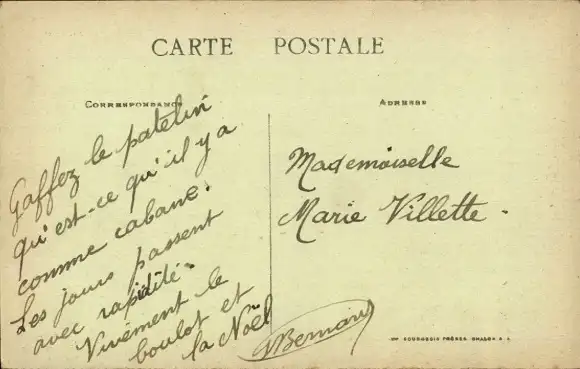 CARTE POSTALE
CORRESPONDANCE
ADRESSE
Gaffez le patelin
qu'est-ce qu'il y a
comme cabane.
Les jours passent
avec rapidité.
Vivement le
boulot et
la Noël
Mademoiselle
Marie Villette.
BOURGEOIS FRÈRES